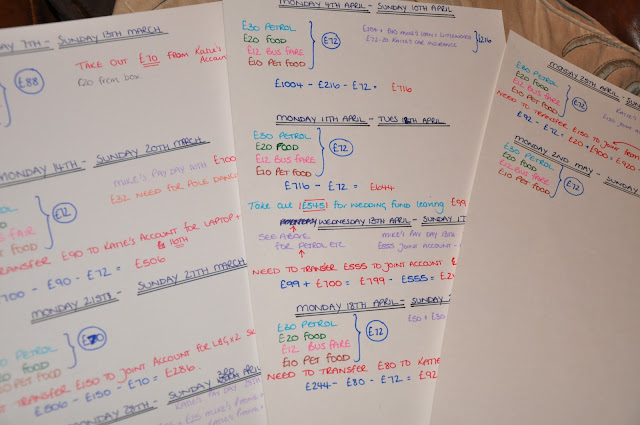 AY 7TH - SUNDAY 13TH MARCH
TAKE OUT £70 FROM KATIE'S
ACCOUNT
£88
£20 from box
MONDAY 14TH - SUNDAY 20TH MARCH
MIKE'S PAY DAY 16TH £700
£32 NEED FOR POLE DANC
PETROL
FOOD
BUS FAIR
PET FOOD
£72
TRANSFER £90 TO KATIE'S ACCOUNT FOR LAPTOP +
16TH
£700 - £90 - £72 = £506
MONDAY 21ST - SUNDAY 27TH MARCH
PETROL
FOOD
PET FOOD
£70
TRANSFER £150 TO JOINT ACCOUNT FOR
£506 - £150 - £70 = £286
MONDAY 28TH - SUNDAY 3RD APRIL
MONDAY 4TH APRIL - SUNDAY 10TH APRIL
£30 PETROL
£20 FOOD
£12 BUS FARE
£10 PET FOOD
£72
£216
£1004 - £216 - £72 = £716
MONDAY 11TH APRIL - TUES APRIL
£30 PETROL
£20 FOOD
£12 BUS FARE
£10 PET FOOD
£72
£716 - £72 = £644
Take out £545 FOR WEDDING FUND LEAVING £99
WEDNESDAY 13TH APRIL - SUNDAY 17
SEE ABOVE
FOR PETROL ETC
MIKE'S PAY DAY 13TH
£555 JOINT ACCOUNT -
NEED TO TRANSFER £555 TO JOINT ACCOUNT
£99 + £700 = £799 - £555 = £2
MONDAY 18TH APRIL - SUNDAY
£30 PETROL
£20 FOOD
£12 BUS FARE
£10 PET FOOD
£72
£50 + £30
NEED TO TRANSFER £80 TO KATIE
£244 - £80 - £72 = £92
MONDAY 25TH APRIL - SUNDAY
£30 PETROL
£20 FOOD
£12 BUS FARE
£10 PET FOOD
£72
NEED TO TRANSFER £150 TO JOINT FROM
£92 - £72 = £20 + £900 = £920 -
MONDAY 2ND MAY - SUNDAY
£30 PETROL
£20 FOOD
£12 BUS FARE
£10 PET FOOD
£72